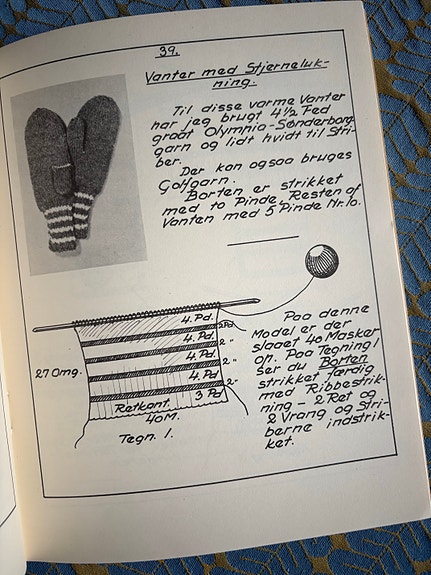 39.
Vanter med Stjerneluk-
ning.
Til disse varme Vanter
har jeg brugt 4½ Fed
graat Olympia-Sønderborg
garn og lidt hvidt til Stri-
ber.
Der kan ogsaa bruges
Golfgarn.
Borten er strikket
med 10 Pinde. Resten af
Vanten med 5 Pinde Nr. 10.
4. Pd.
2 Pd.
4. Pd.
2 "
4. Pd
2 "
4. Pd
2 "
3 Pd
27 Omg.
Retkant.
40 M.
Tegn. 1.
Paa denne
Model er der
slaaet 40 Masker
op. Paa Tegning 1
ser du Borten
strikket færdig
med Ribbestrik-
ning - 2 Ret og
2 Vrang og Stri-
berne indstrik-
ket.